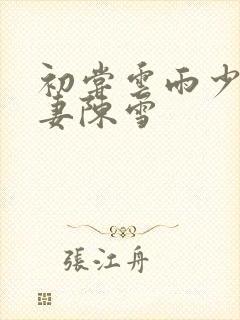 初尝雲雨少
妻陳雪
張江舟